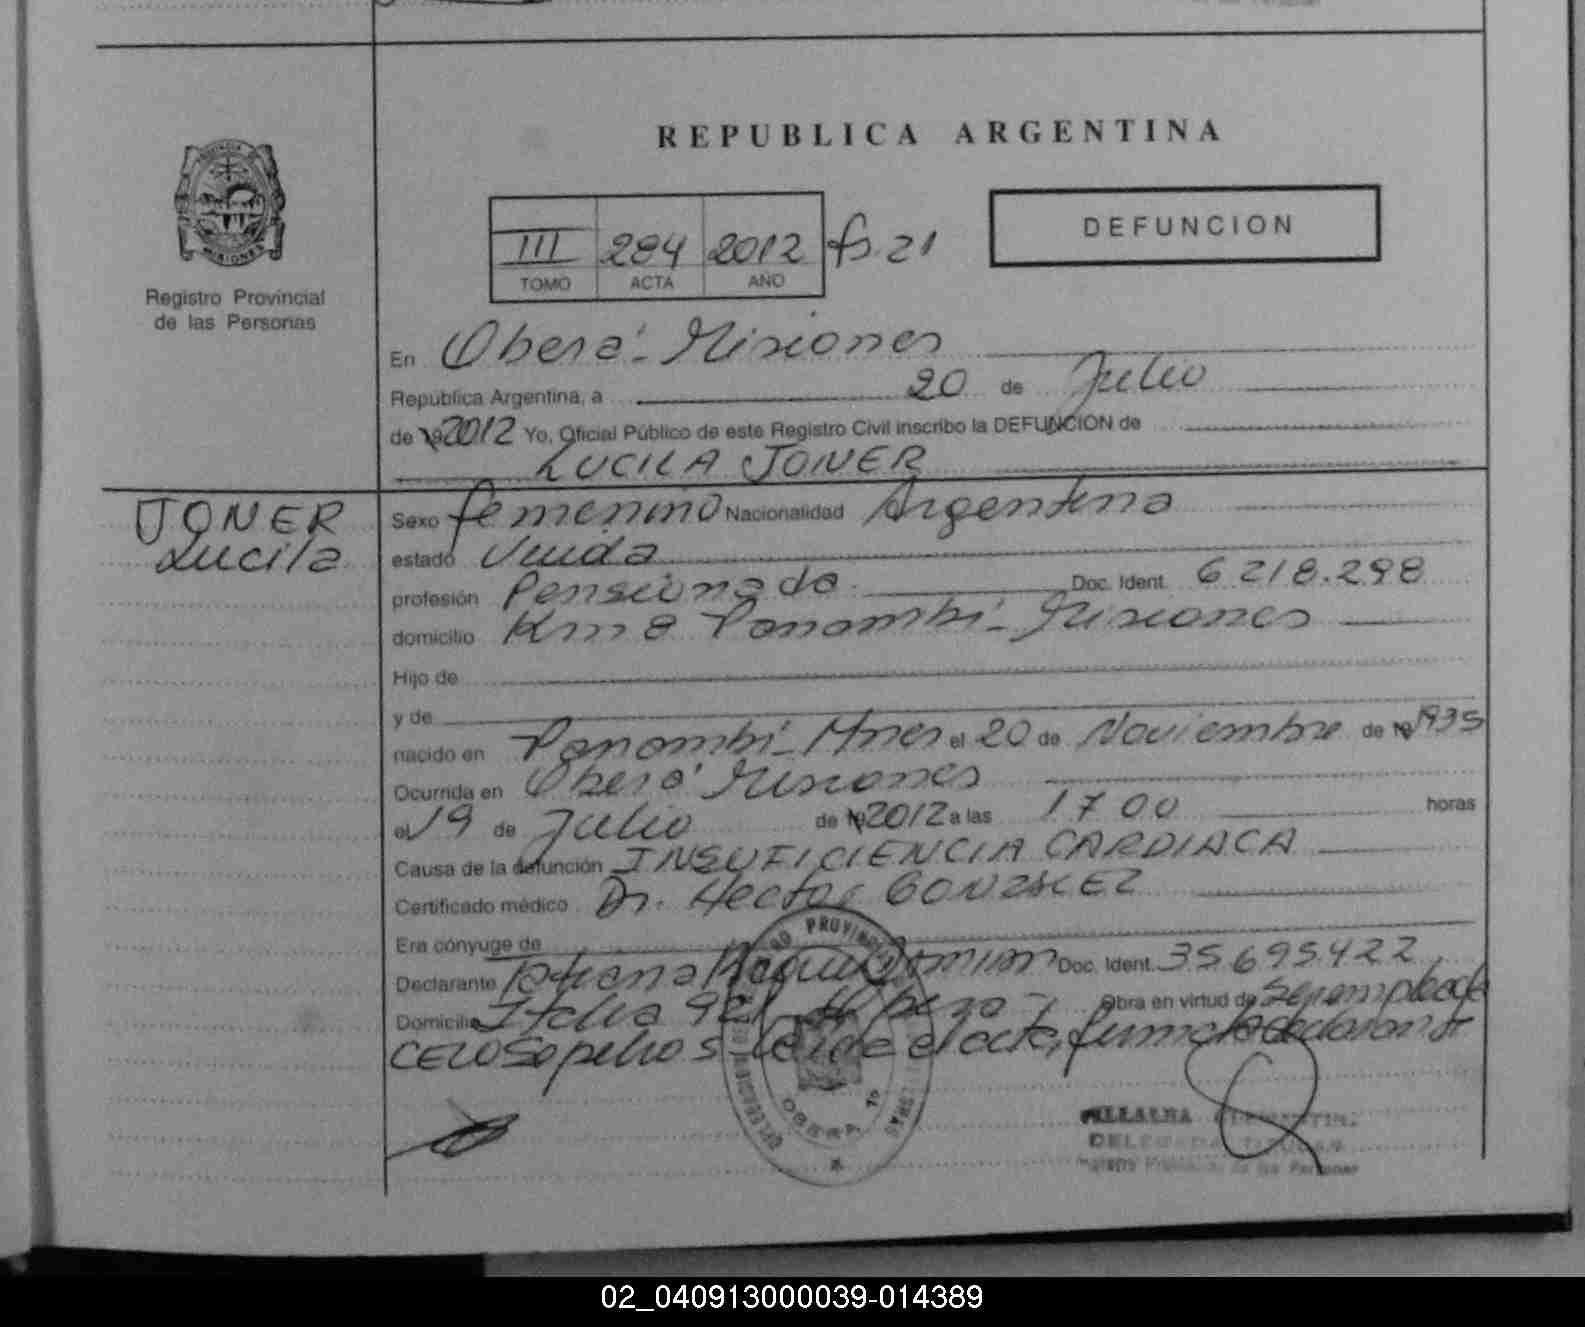 REPUBLICA ARGENTINA
DEFUNCION
III 284 2012 fº. 21
TOMO ACTA AÑO
PROVINCIA
MISIONES
Registro Provincial
de las Personas
En Oberá - Misiones
Republica Argentina, a 20 de Julio
de 19 2012 Yo, Oficial Público de este Registro Civil inscribo la DEFUNCION de
LUCILA JONER
JONER
Lucila
Sexo femenino Nacionalidad Argentina
estado Viuda
profesión Pensionada Doc. Ident. 6 218.298
domicilio Km 8 Panambí - Misiones
Hijo de
y de
nacido en Panambí - Mnes el 20 de Noviembre de 1935
Ocurrida en Oberá Misiones
el 19 de Julio de 19 2012 a las 17 00 horas
Causa de la defunción INSUFICIENCIA CARDIACA
Certificado médico Dr. Hector GONZALEZ
Era cónyuge de
Declarante Doc. Ident. 35.695.422
Domicilio Italia Obra en virtud de Ser empleada
Leida el acta, firma la declarante
OBERA
VILLALBA
DELEGADA TITULAR
Registro Provincial de las Personas
02_040913000039-014389